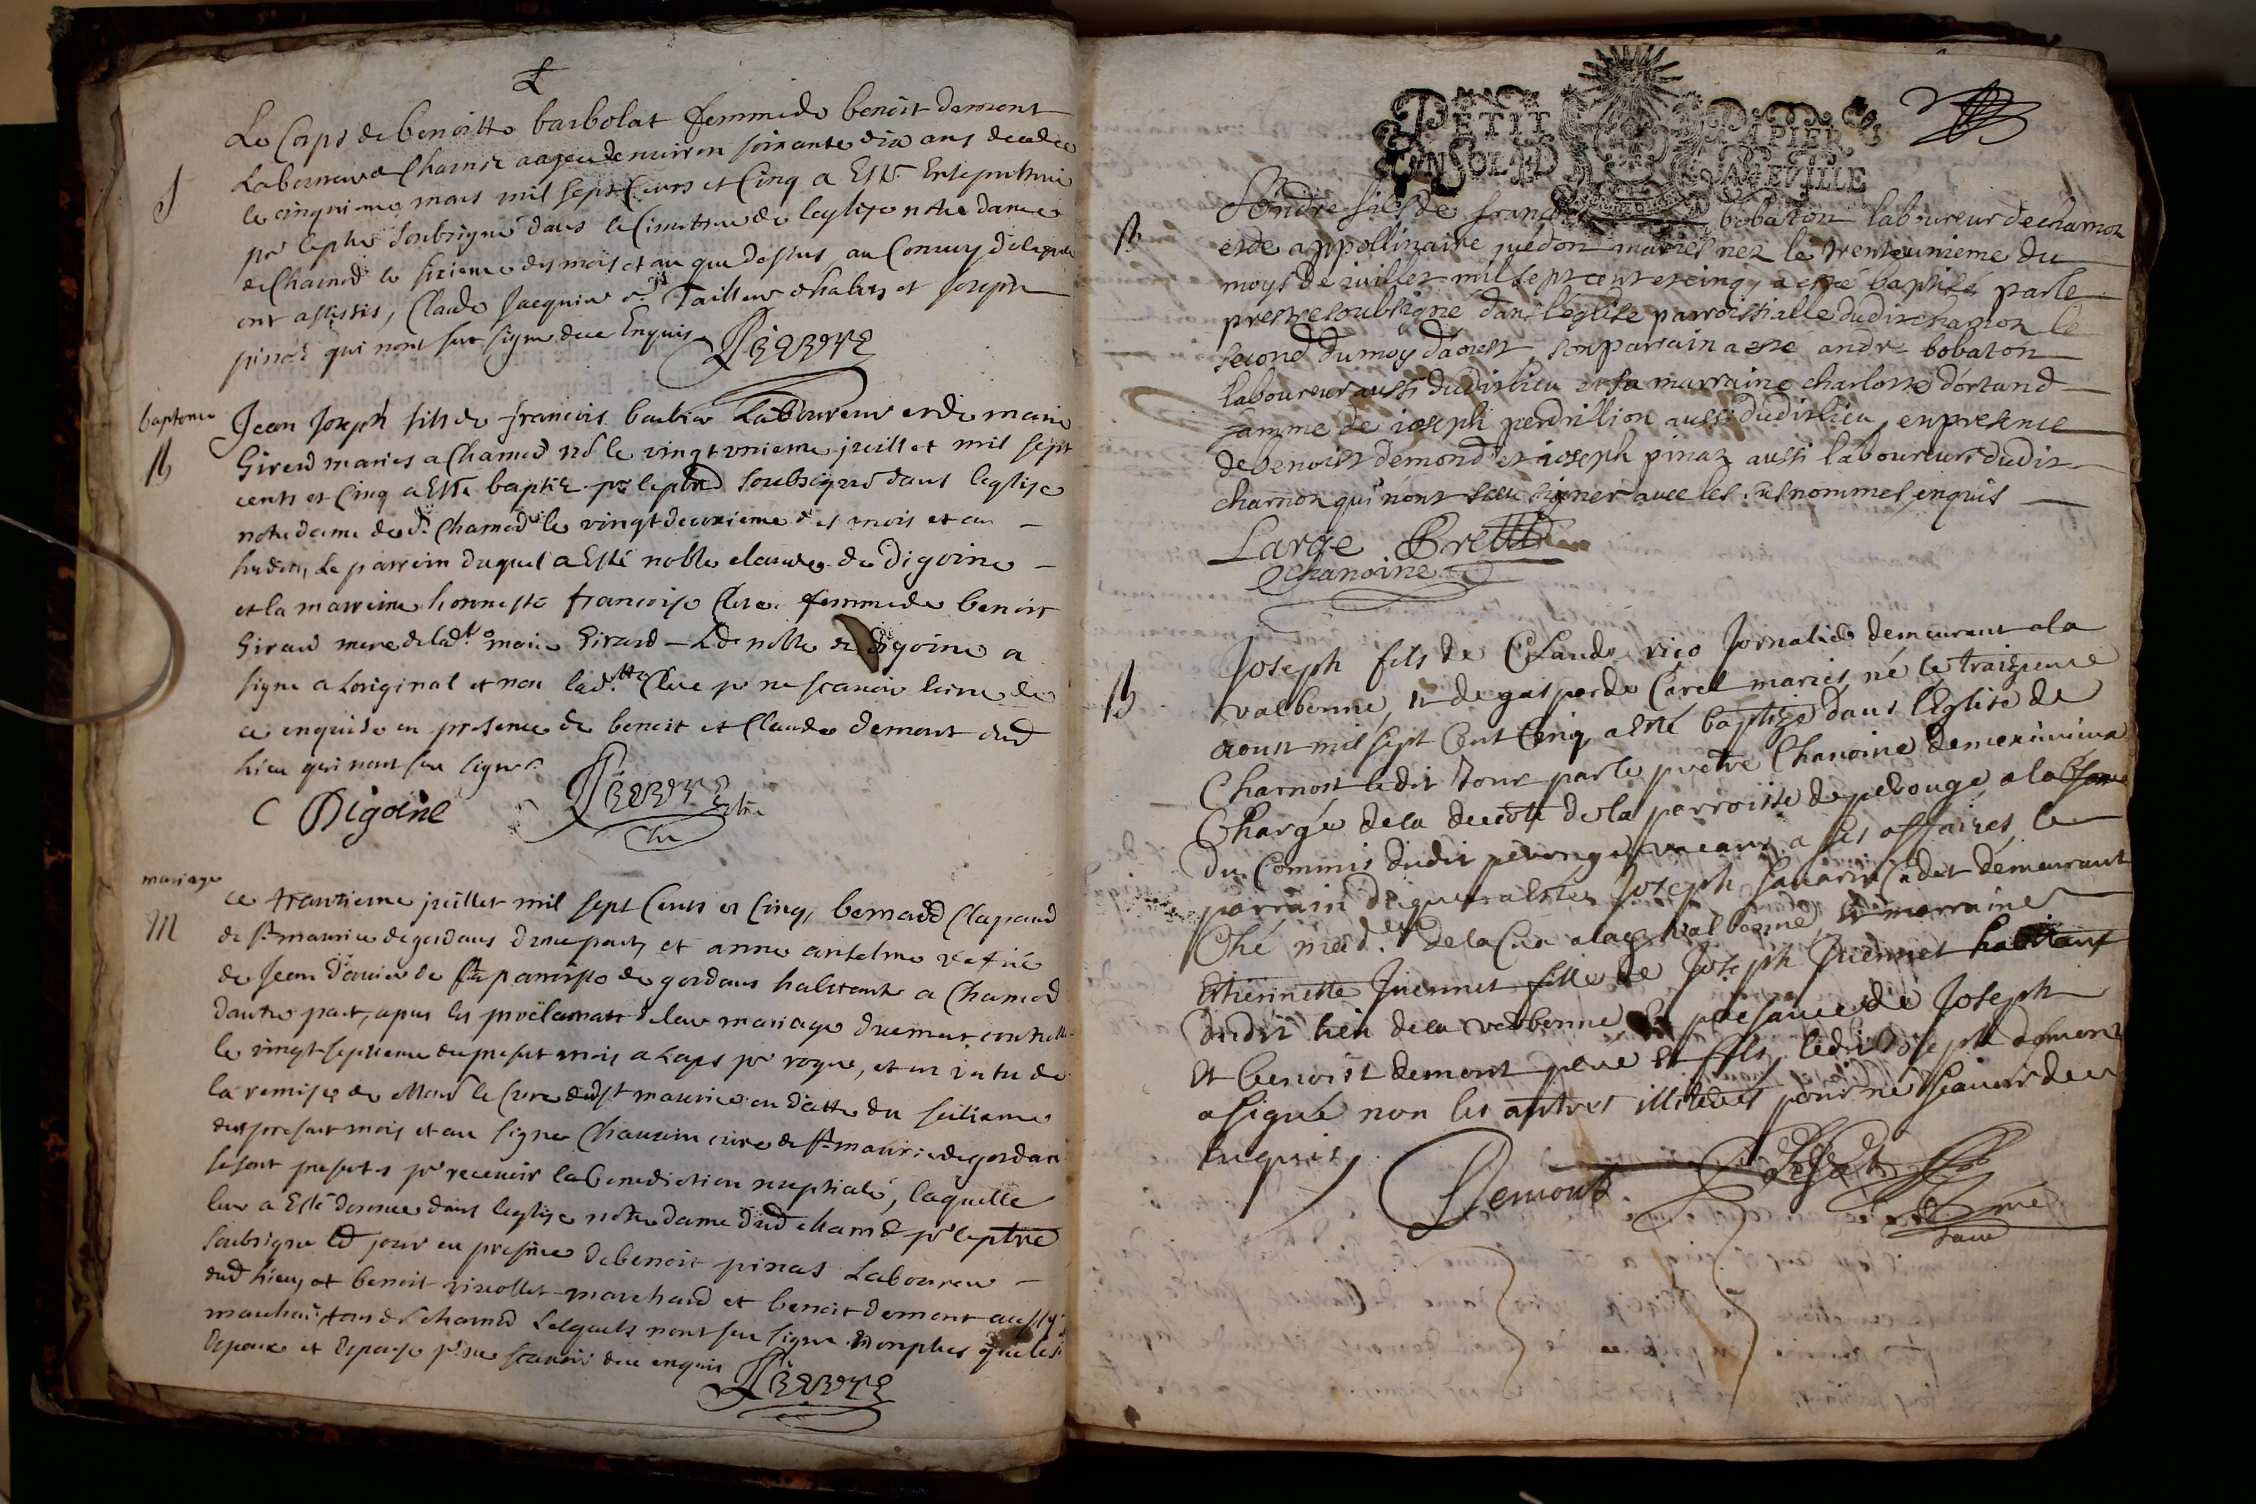 Le Corps de benoitte barbolat femme de benoit demont
Laboureur de Charnoz aagee denviron soixante dix ans decedee
le cinquieme mars mil sept Cents et Cinq a Esté Ensepulturée
pr le ptre soubsigné dans le Cimitiere de leglise notre dame
de Charnod le sizieme des mois et an que dessus, au Convoy de laquelle
ont assistés, Claude Jacquin Tailleur dhabits et Joseph
pinas qui nont sur signer de ce Enquis
S
baptome
B
Jean Joseph fils de francois barbier Laboureur et de marie
Girard maries a Charnod né le vingt unieme juillet mil sept
cents et Cinq a Esté baptizé pr le ptre soubsigné dans leglise
notre dame dud. Charnod le vingt deuxieme des mois et an
susdits, Le parrein duquel a Esté noble claude de Digoine
et la marreine honneste francoise Clere femme de benoit
Girard mere de lad.t marie Girard Led noble de digoine a
signe a Loriginal et non lad.tte Clere pr ne scavoir
ce enquise en presence de benoit et Claude demont dud
lieu qui nont sceu signer
C Digoine
mariage
M
ce trantieme juillet mil sept Cents et Cinq, bernard Clapaud
de St maurice de gordans dune part, et anne antelme
de Jean de paroisse de gordans habitante a Charnod
dautre part, apres les proclamatt de leur mariage
le vingt septieme du present mois, et en vertu de
la remise de Mons le Cure dud St maurice en datte du seiziame
du present mois et an signe Chauvin cure de St maurice de gordans
se sont presentes pr recevoir la benediction nuptiale, laquelle
leur a Esté donnee dans leglise notre dame dud charnod pr le ptre
soubsigne led jour en presence de benoit pinas Laboureur
dud lieu, et benoit violet marchand et benoit demont aussy
marchand tous de Charnod Lesquels nont sceu signer non plus que les
Epoux et Epouse pr ne scavoir de ce enquis
PETIT PAPIER
UN SOL LA FEUILLE
B
André fils de francois bobaton laboureur de charnoz
et de appollinaire guédon mariés nez le trenteunieme du
moys de juillet mil sept cent et cinq, a esté baptisé par le
prestre soubsigné dans leglise parroissialle dudit charnoz le
second du moy d'aoust, son parrain a esté andré bobaton
laboureur aussi dudit lieu et sa marraine charlotte dortand
famme de ioseph perdrillion aussi dudit lieu, en presence
de benoist demond et ioseph pinaz aussi laboureurs dudit
charnoz qui nont sceu signer avec les susnommes enquis
Large Prettre
Chanoine
B
Joseph fils de Claude rigo Jornalier demeurant a la
valbonne, et de gasparde Carel mariés, né le traizieme
aoust mil sept Cent Cinq a esté baptizé dans l'Eglise de
Charnost ledit Jour par le prettre Chanoine de meximieux
Chargé de la deserte de la parroisse de perouge, a labsance
du Commis dudit perouge vacant a ses affaires, le
parrain duquel a estez Joseph Savarin Cadet demeurant
Ché med. a lag valbonne, et marraine
Etiennette Juennet fille de Joseph Juennet habitant
dudit lieu de la valbonne en presance de Joseph
et benoist demont pere et fils, ledit Joseph demont
a signé non les autres illiterés pour ne scavoir de ce
enquis
Demont